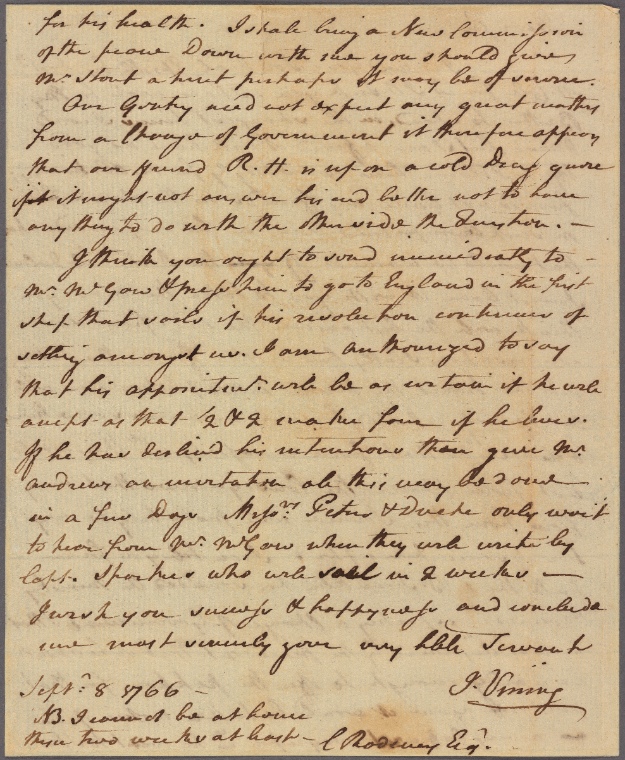 for his health. I shall bring a New Commission
of the peace Down with me you should give
Mr. Stout a hint perhaps it may be of service.
Our Gentry need not expect any great matters
from a Change of Government it therefore appears
that our friend R. H. is upon a cold Drag quere
if it might not answer his end better not to have
any thing to do with the other side the Question. —
I think you ought to send immediately to
Mr. McGaw & press him to go to England in the first
ship that sails if his resolution continues of
setling amongst us. I am authourized to say
that his appointmt. will be as certain if he will
accept as that 2 & 2 make four if he lives.
If he has declined his intentions then give Mr.
Andrews an invitation all this may be done
in a few Days Messrs. Peters & Duche only wait
to hear from Mr. McGaw when they will write by
Capt. Sparkes who will sail in 2 weeks —
I wish you success & happyness and conclude
me most sincerely your very hble Servant
J. Vining
Sept. 8 1766 —
NB. I cannot be at home
these two weeks at least —
C Rodney Esqr.